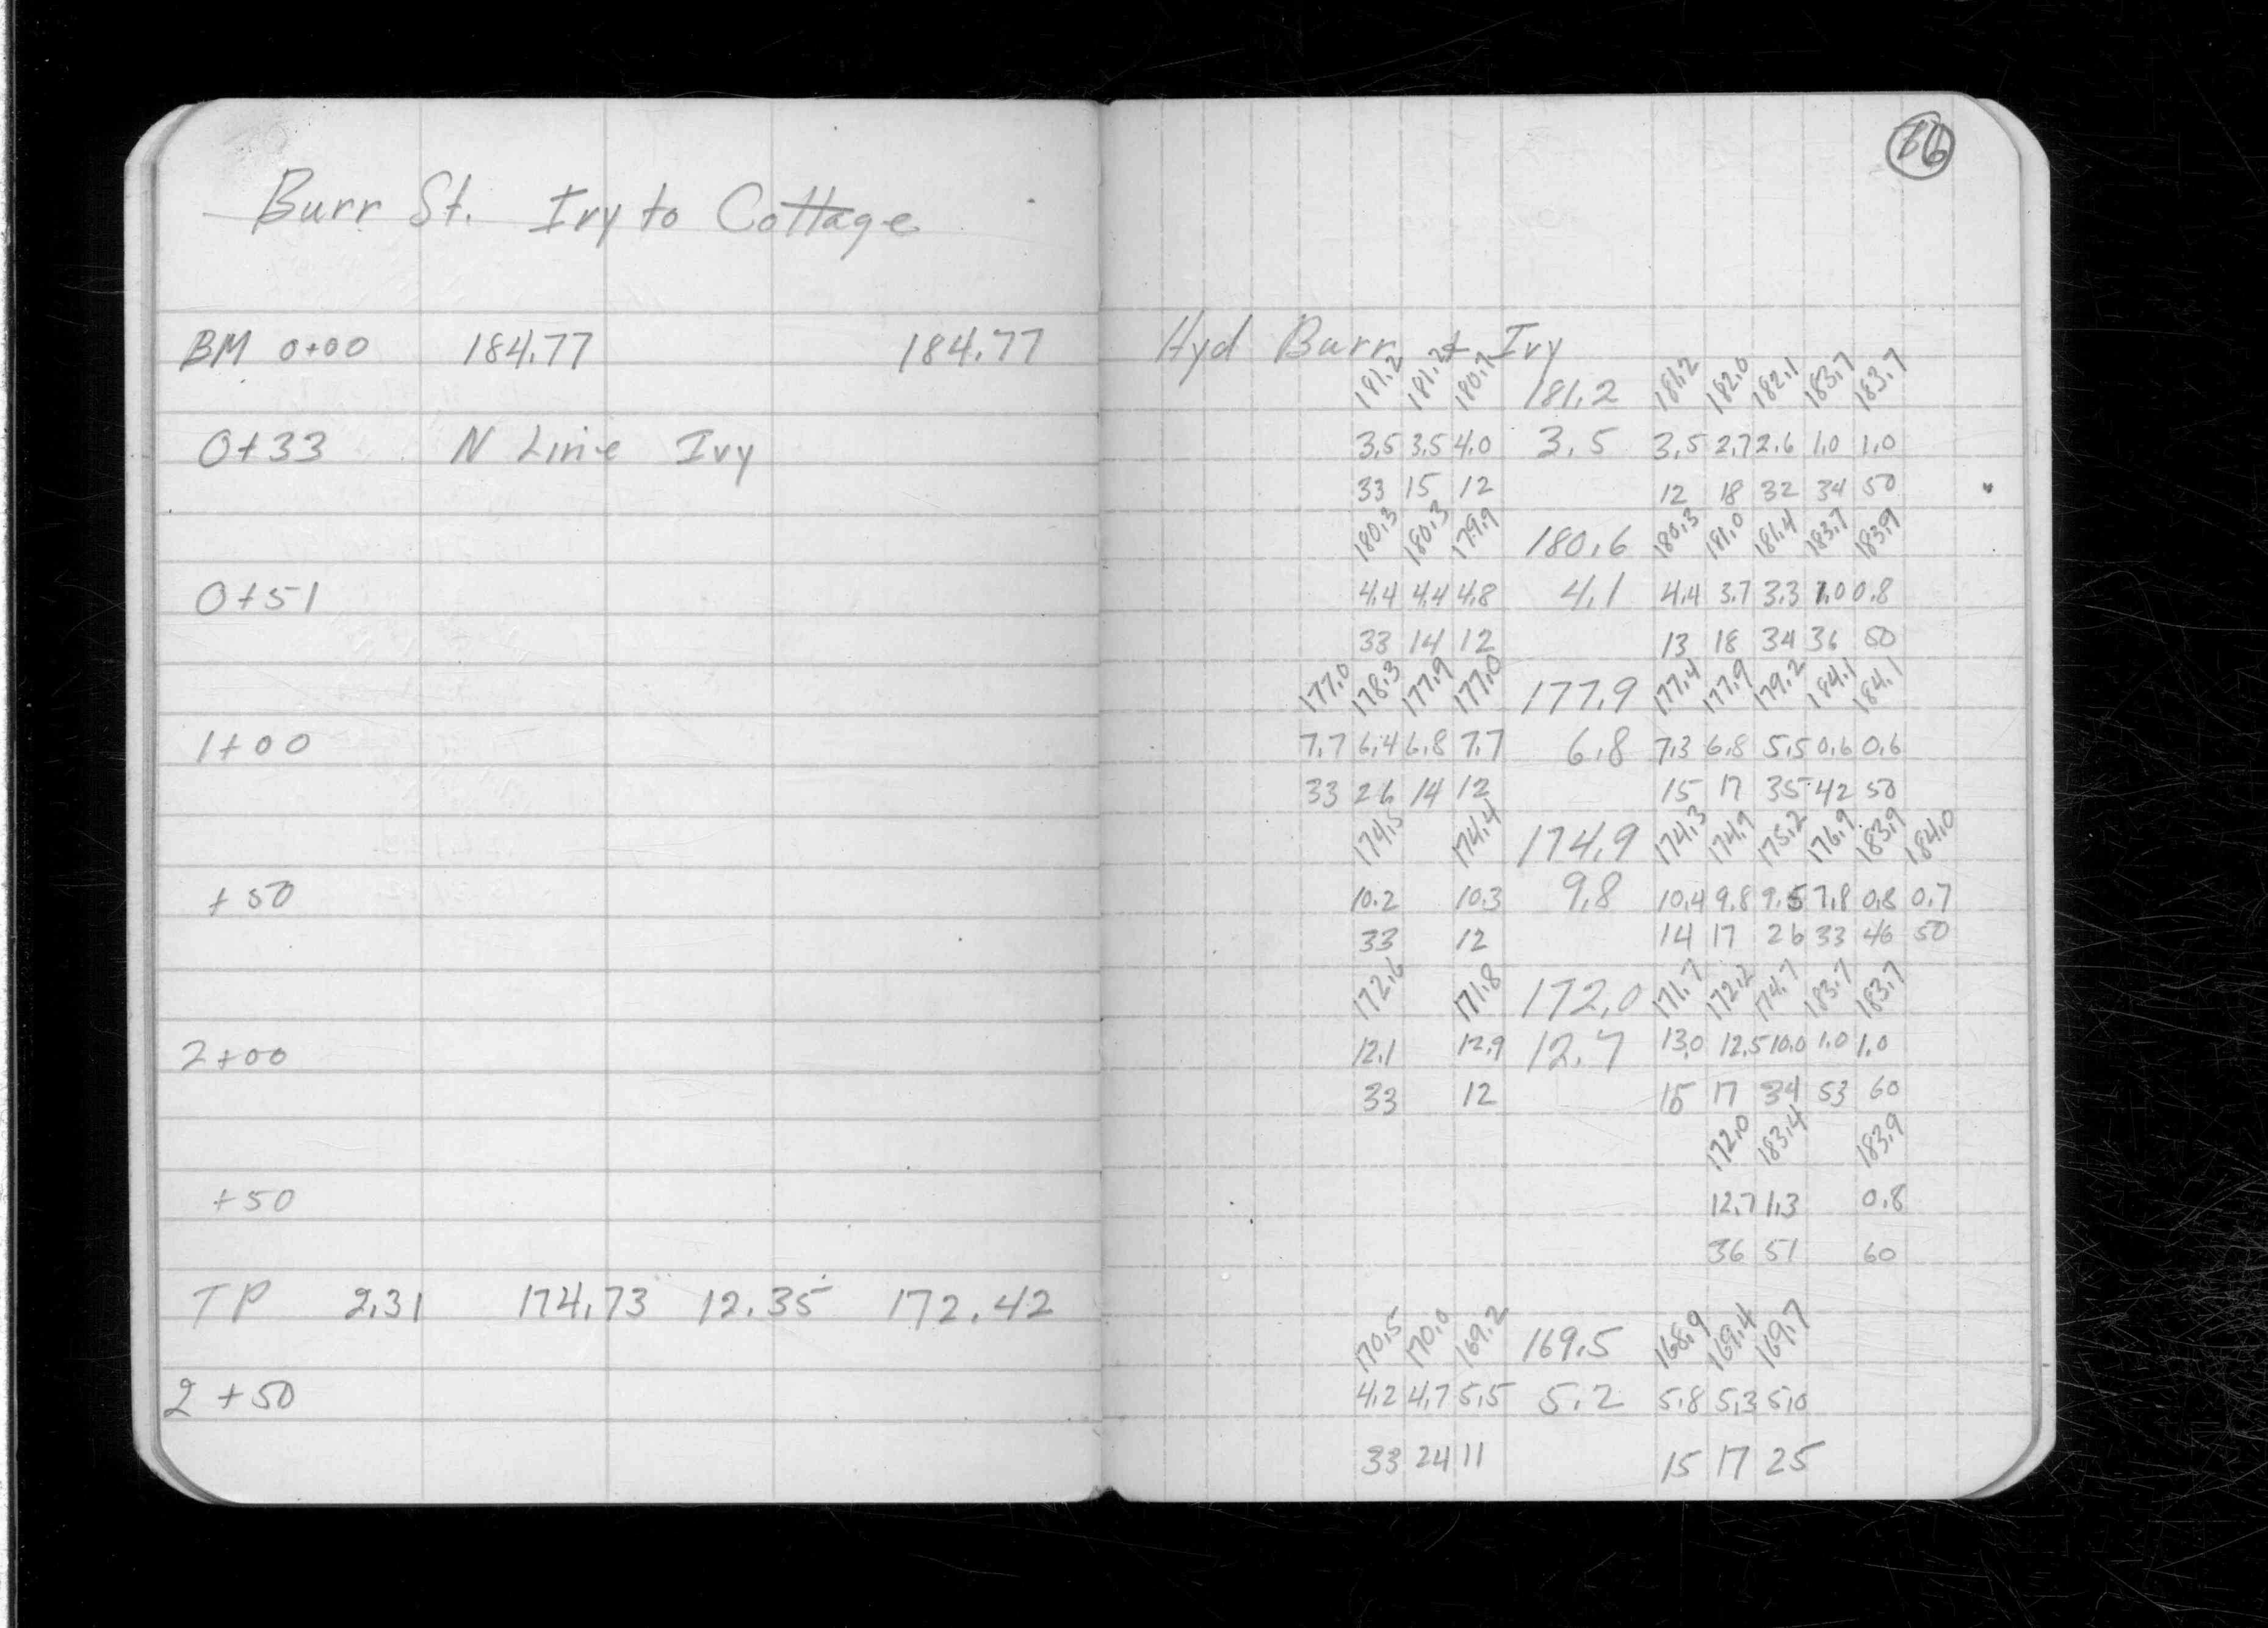 16
Burr St. Ivy to Cottage
BM 0+00 184.77 184.77 Hyd Burr & Ivy
181.2 181.2 180.7 181.2 181.2 182.0 182.1 183.7 183.7
0+33 N Line Ivy 3.5 3.5 4.0 3.5 3.5 2.7 2.6 1.0 1.0
33 15 12 12 18 32 34 50
180.3 180.3 179.9 180.6 180.3 181.0 181.4 183.7 183.9
0+51 4.4 4.4 4.8 4.1 4.4 3.7 3.3 1.0 0.8
33 14 12 13 18 34 36 50
177.0 178.3 177.9 177.0 177.9 177.4 177.9 179.2 184.1 184.1
1+00 7.7 6.4 6.8 7.7 6.8 7.3 6.8 5.5 0.6 0.6
33 26 14 12 15 17 35 42 50
174.5 174.4 174.9 174.3 174.9 175.2 176.9 183.9 184.0
+50 10.2 10.3 9.8 10.4 9.8 9.5 7.8 0.8 0.7
33 12 14 17 26 33 46 50
172.6 171.8 172.0 171.7 172.2 174.7 183.7 183.7
2+00 12.1 12.9 12.7 13.0 12.5 10.0 1.0 1.0
33 12 15 17 34 53 60
172.0 183.4 183.9
+50 12.7 1.3 0.8
36 51 60
TP 2.31 174.73 12.35 172.42
170.5 170.0 169.2 169.5 168.9 169.4 169.7
2+50 4.2 4.7 5.5 5.2 5.8 5.3 5.0
33 24 11 15 17 25